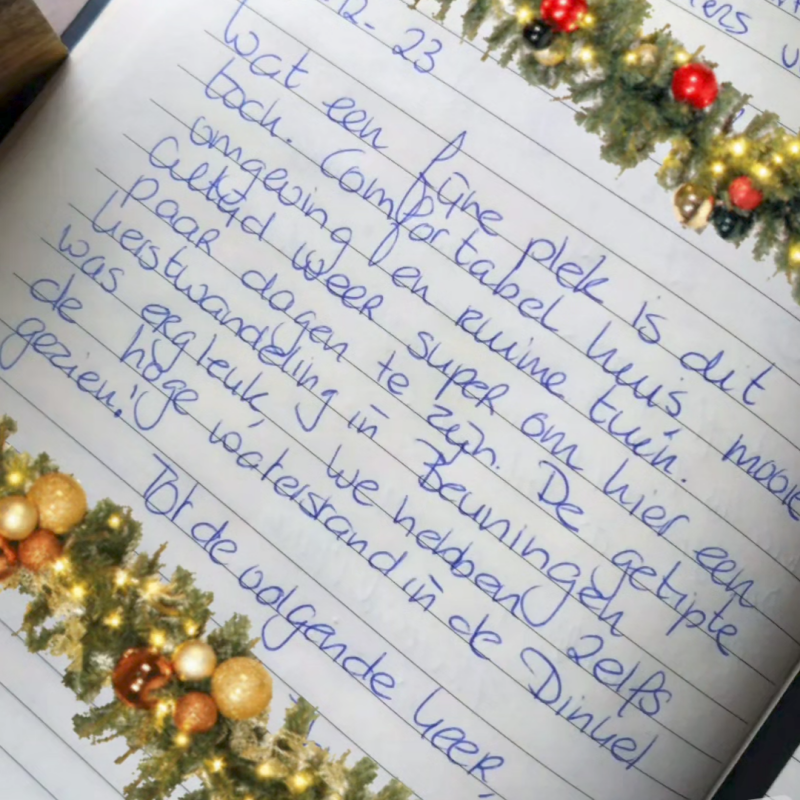 12-23
Wat een fijne plek is dit
toch. Comfortabel huis, mooie
omgeving en ruime tuin.
Altijd weer super om hier een
paar dagen te zijn. De getipte
kerstwandeling in Beuningen
was erg leuk, we hebben zelfs
de hoge waterstand in de Dinkel
gezien!
Tot de volgende keer,